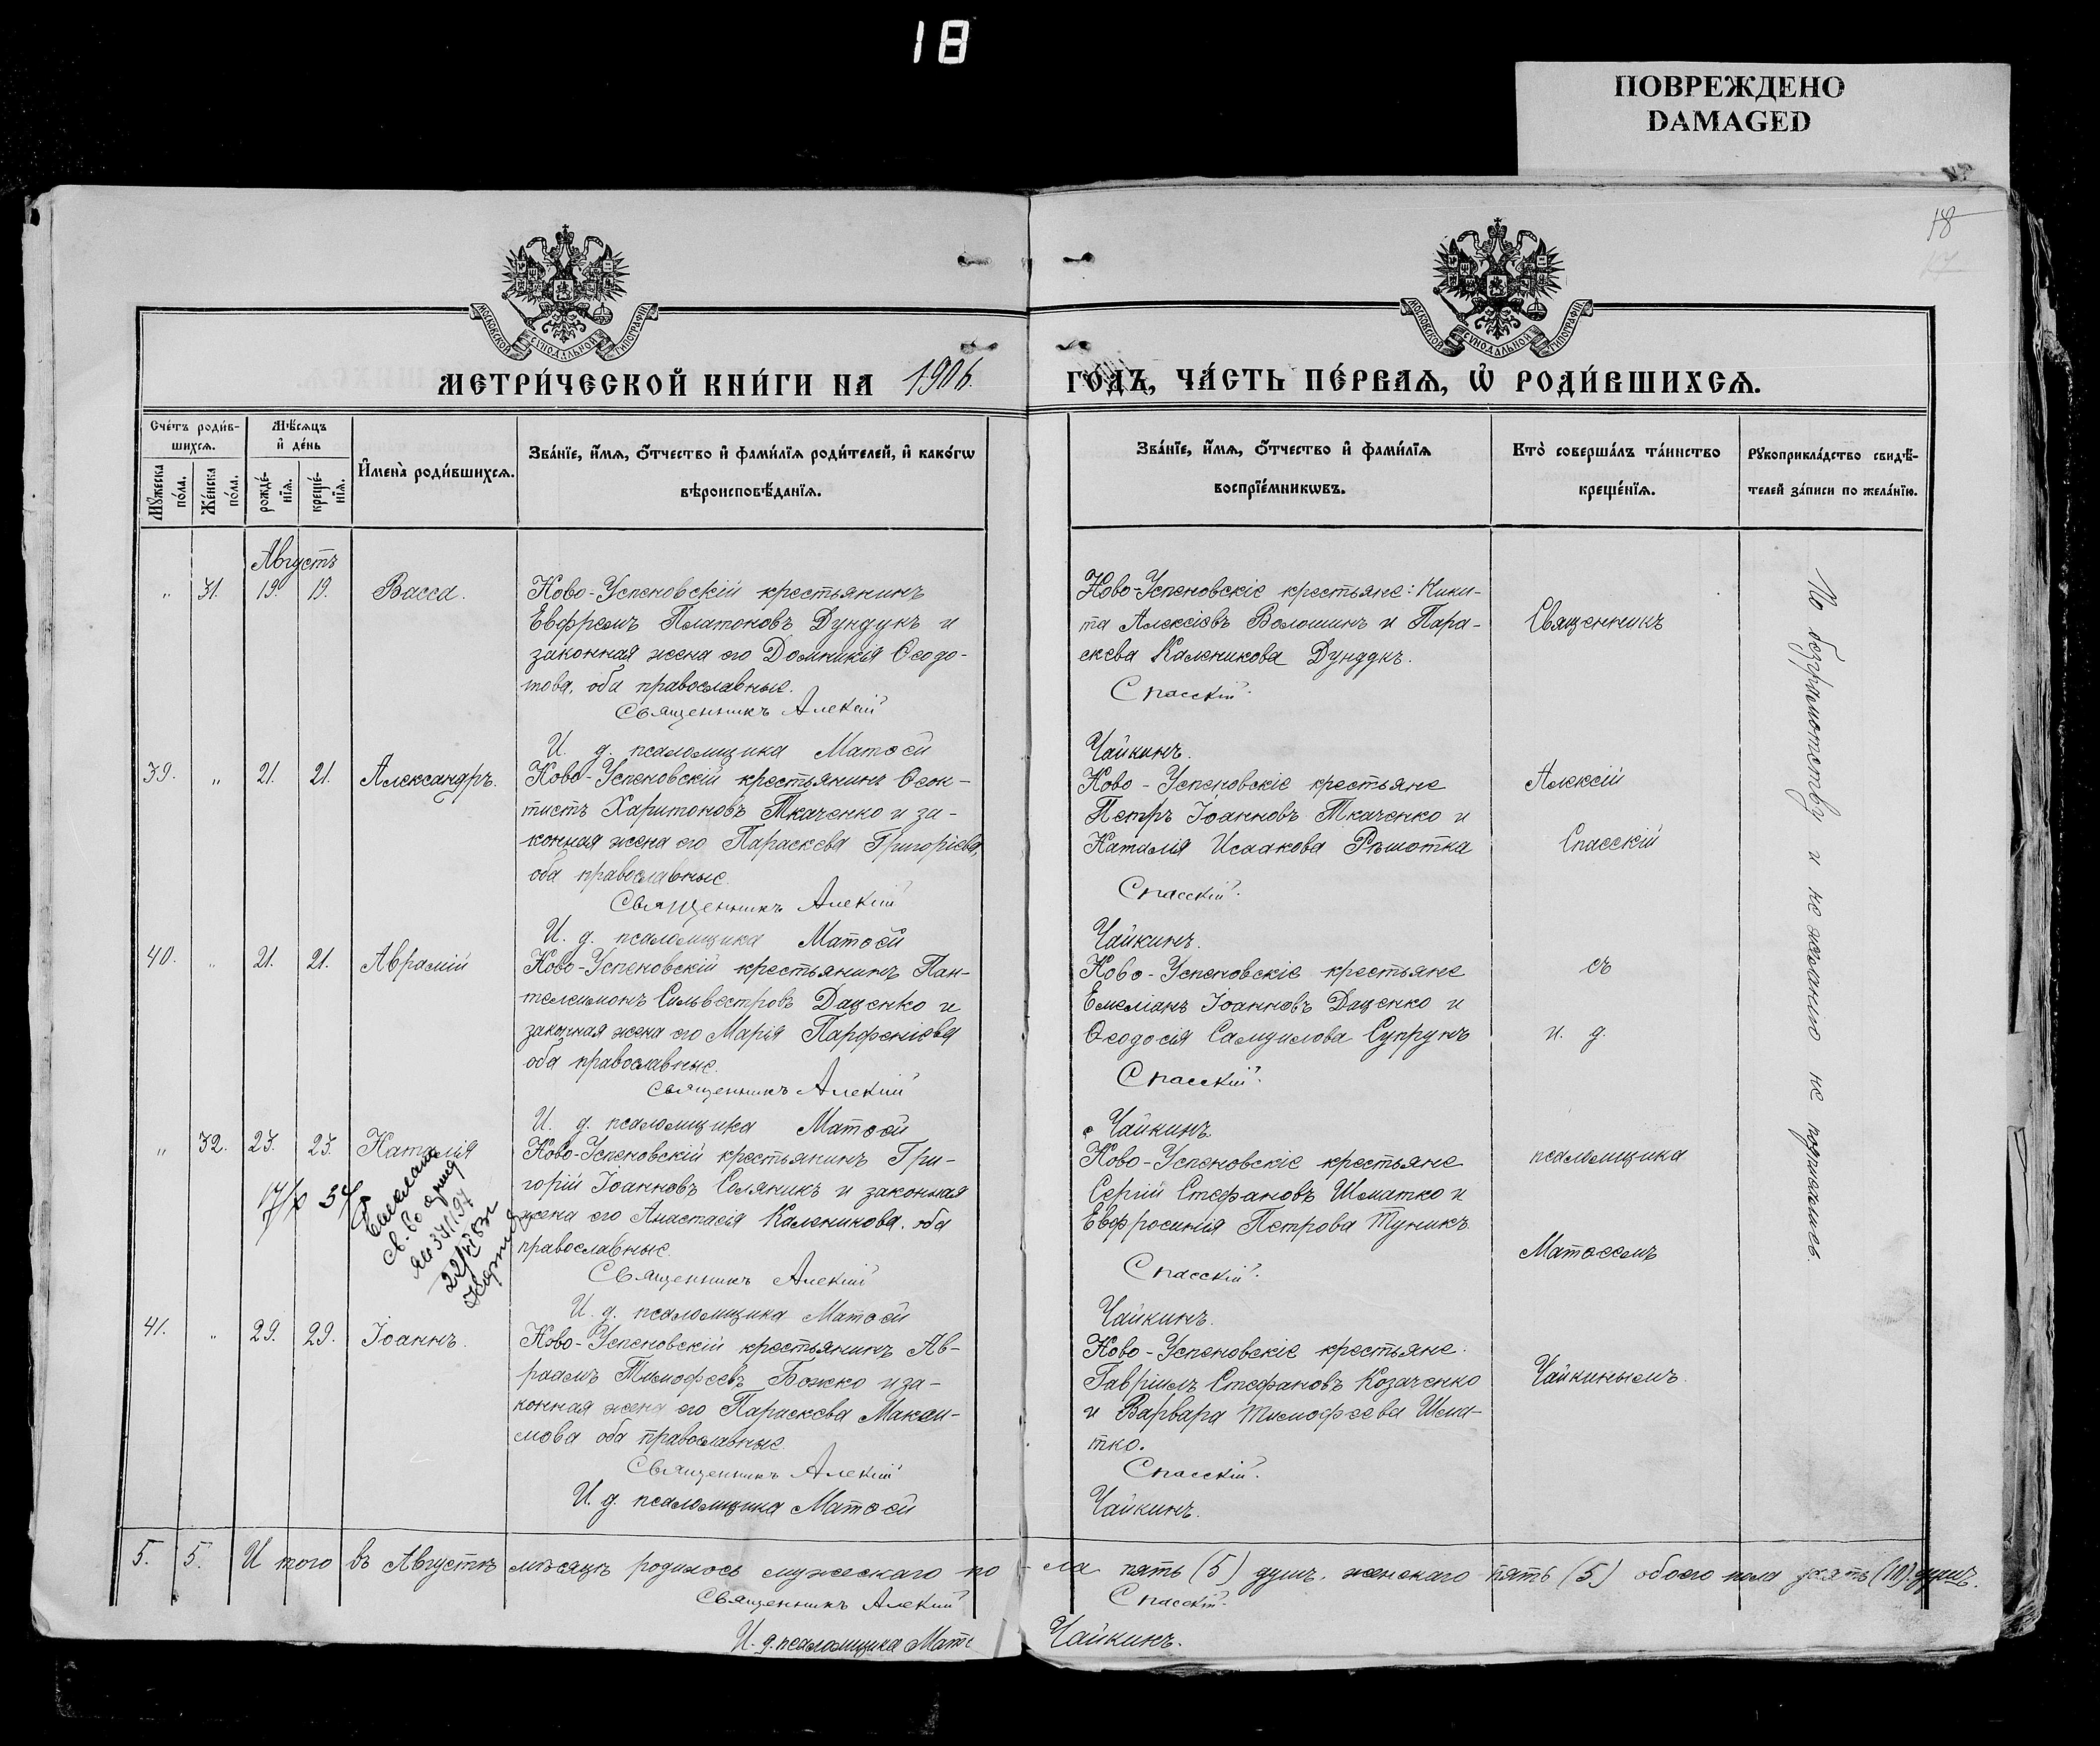 18
ПОВРЕЖДЕНО
DAMAGED
18
МОСКОВСКОЙ СѴНОДАЛЬНОЙ ТИПОГРАФІИ
МОСКОВСКОЙ СѴНОДАЛЬНОЙ ТИПОГРАФІИ
МЕТРИ́ЧЕСКОЙ КНИ́ГИ НА 1906.
ГО́ДЪ, ЧА́СТЬ ПЕ́РВАѦ, Ѡ҆ РОДИ́ВШИХСѦ.
Сче́тъ роди́в-
шихсѧ.
Мꙋжеска по́ла.
Же́нска по́ла.
Мѣ́сѧцъ
и҆ де́нь
рожде́-
нїѧ.
креще́-
нїѧ.
И҆мена̀ роди́вшихсѧ.
Зва́нїе, и҆́мѧ, ѻ҆́тчество и҆ фами́лїѧ роди́телей, и҆ како́гѡ
вѣроисповѣ́данїѧ.
Зва́нїе, и҆́мѧ, ѻ҆́тчество и҆ фами́лїѧ
воспрїе́мникѡвъ.
Кто̀ соверша́лъ та́инство
креще́нїѧ.
Рꙋкоприкла́дство свидѣ́-
телей за́писи по жела́нїю.
Августъ
" 31. 19. 19. Васса.
Ново-Успеновскій крестьянинъ
Евфремъ Платоновъ Дундукъ и
законная жена его Домникія Ѳеодо-
това, оба православные.
Священникъ Алексій
И. д. псаломщика Матѳей
Ново-Успеновскіе крестьяне: Ники-
та Алексіевъ Волошинъ и Пара-
скева Каленикова Дундукъ.
Спасскій.
Чайкинъ.
39. " 21. 21. Александръ.
Ново-Успеновскій крестьянинъ Ѳеок-
тистъ Харитоновъ Ткаченко и за-
конная жена его Параскева Григоріева,
оба православные.
Священникъ Алексій
И. д. псаломщика Матѳей
Ново-Успеновскіе крестьяне
Петръ Іоанновъ Ткаченко и
Наталія Исаакова Рѣшотка
Спасскій.
Чайкинъ.
40. " 21. 21. Аврамій
Ново-Успеновскій крестьянинъ Пан-
телеимонъ Сильвестровъ Даценко и
законная жена его Марія Парфеніева
оба православные.
Священникъ Алексій
И. д. псаломщика Матѳей
Ново-Успеновскіе крестьяне
Емеліанъ Іоанновъ Даценко и
Ѳеодосія Самуилова Супрунъ
Спасскій.
Чайкинъ.
" 32. 23. 23. Наталія
Ново-Успеновскій крестьянинъ Гри-
горій Іоанновъ Соляникъ и законная
жена его Анастасія Каленикова, оба
православные.
Священникъ Алексій
И. д. псаломщика Матѳей
Ново-Успеновскіе крестьяне
Сергій Стефановъ Шматко и
Евфросинія Петрова Туникъ
Спасскій.
Чайкинъ.
41. " 29. 29. Іоаннъ.
Ново-Успеновскій крестьянинъ Ав-
раамъ Тимофеевъ Божко и за-
конная жена его Параскева Макси-
мова оба православные.
Священникъ Алексій
И. д. псаломщика Матѳей
Ново-Успеновскіе крестьяне
Гавріилъ Стефановъ Козаченко
и Варвара Тимофеева Шма-
тко.
Спасскій.
Чайкинъ.
Священникъ
Алексій
Спасскій
съ
и. д.
псаломщика
Матѳеемъ
Чайкинымъ.
По безграмотству и не желанію не подписались.
5. 5. И того въ Августѣ мѣсяцѣ родилось мужескаго по-ла пять (5) душъ, женскаго пять (5) обоего пола десять (10) душъ.
Священникъ Алексій Спасскій.
И. д. псаломщика Матѳ Чайкинъ.